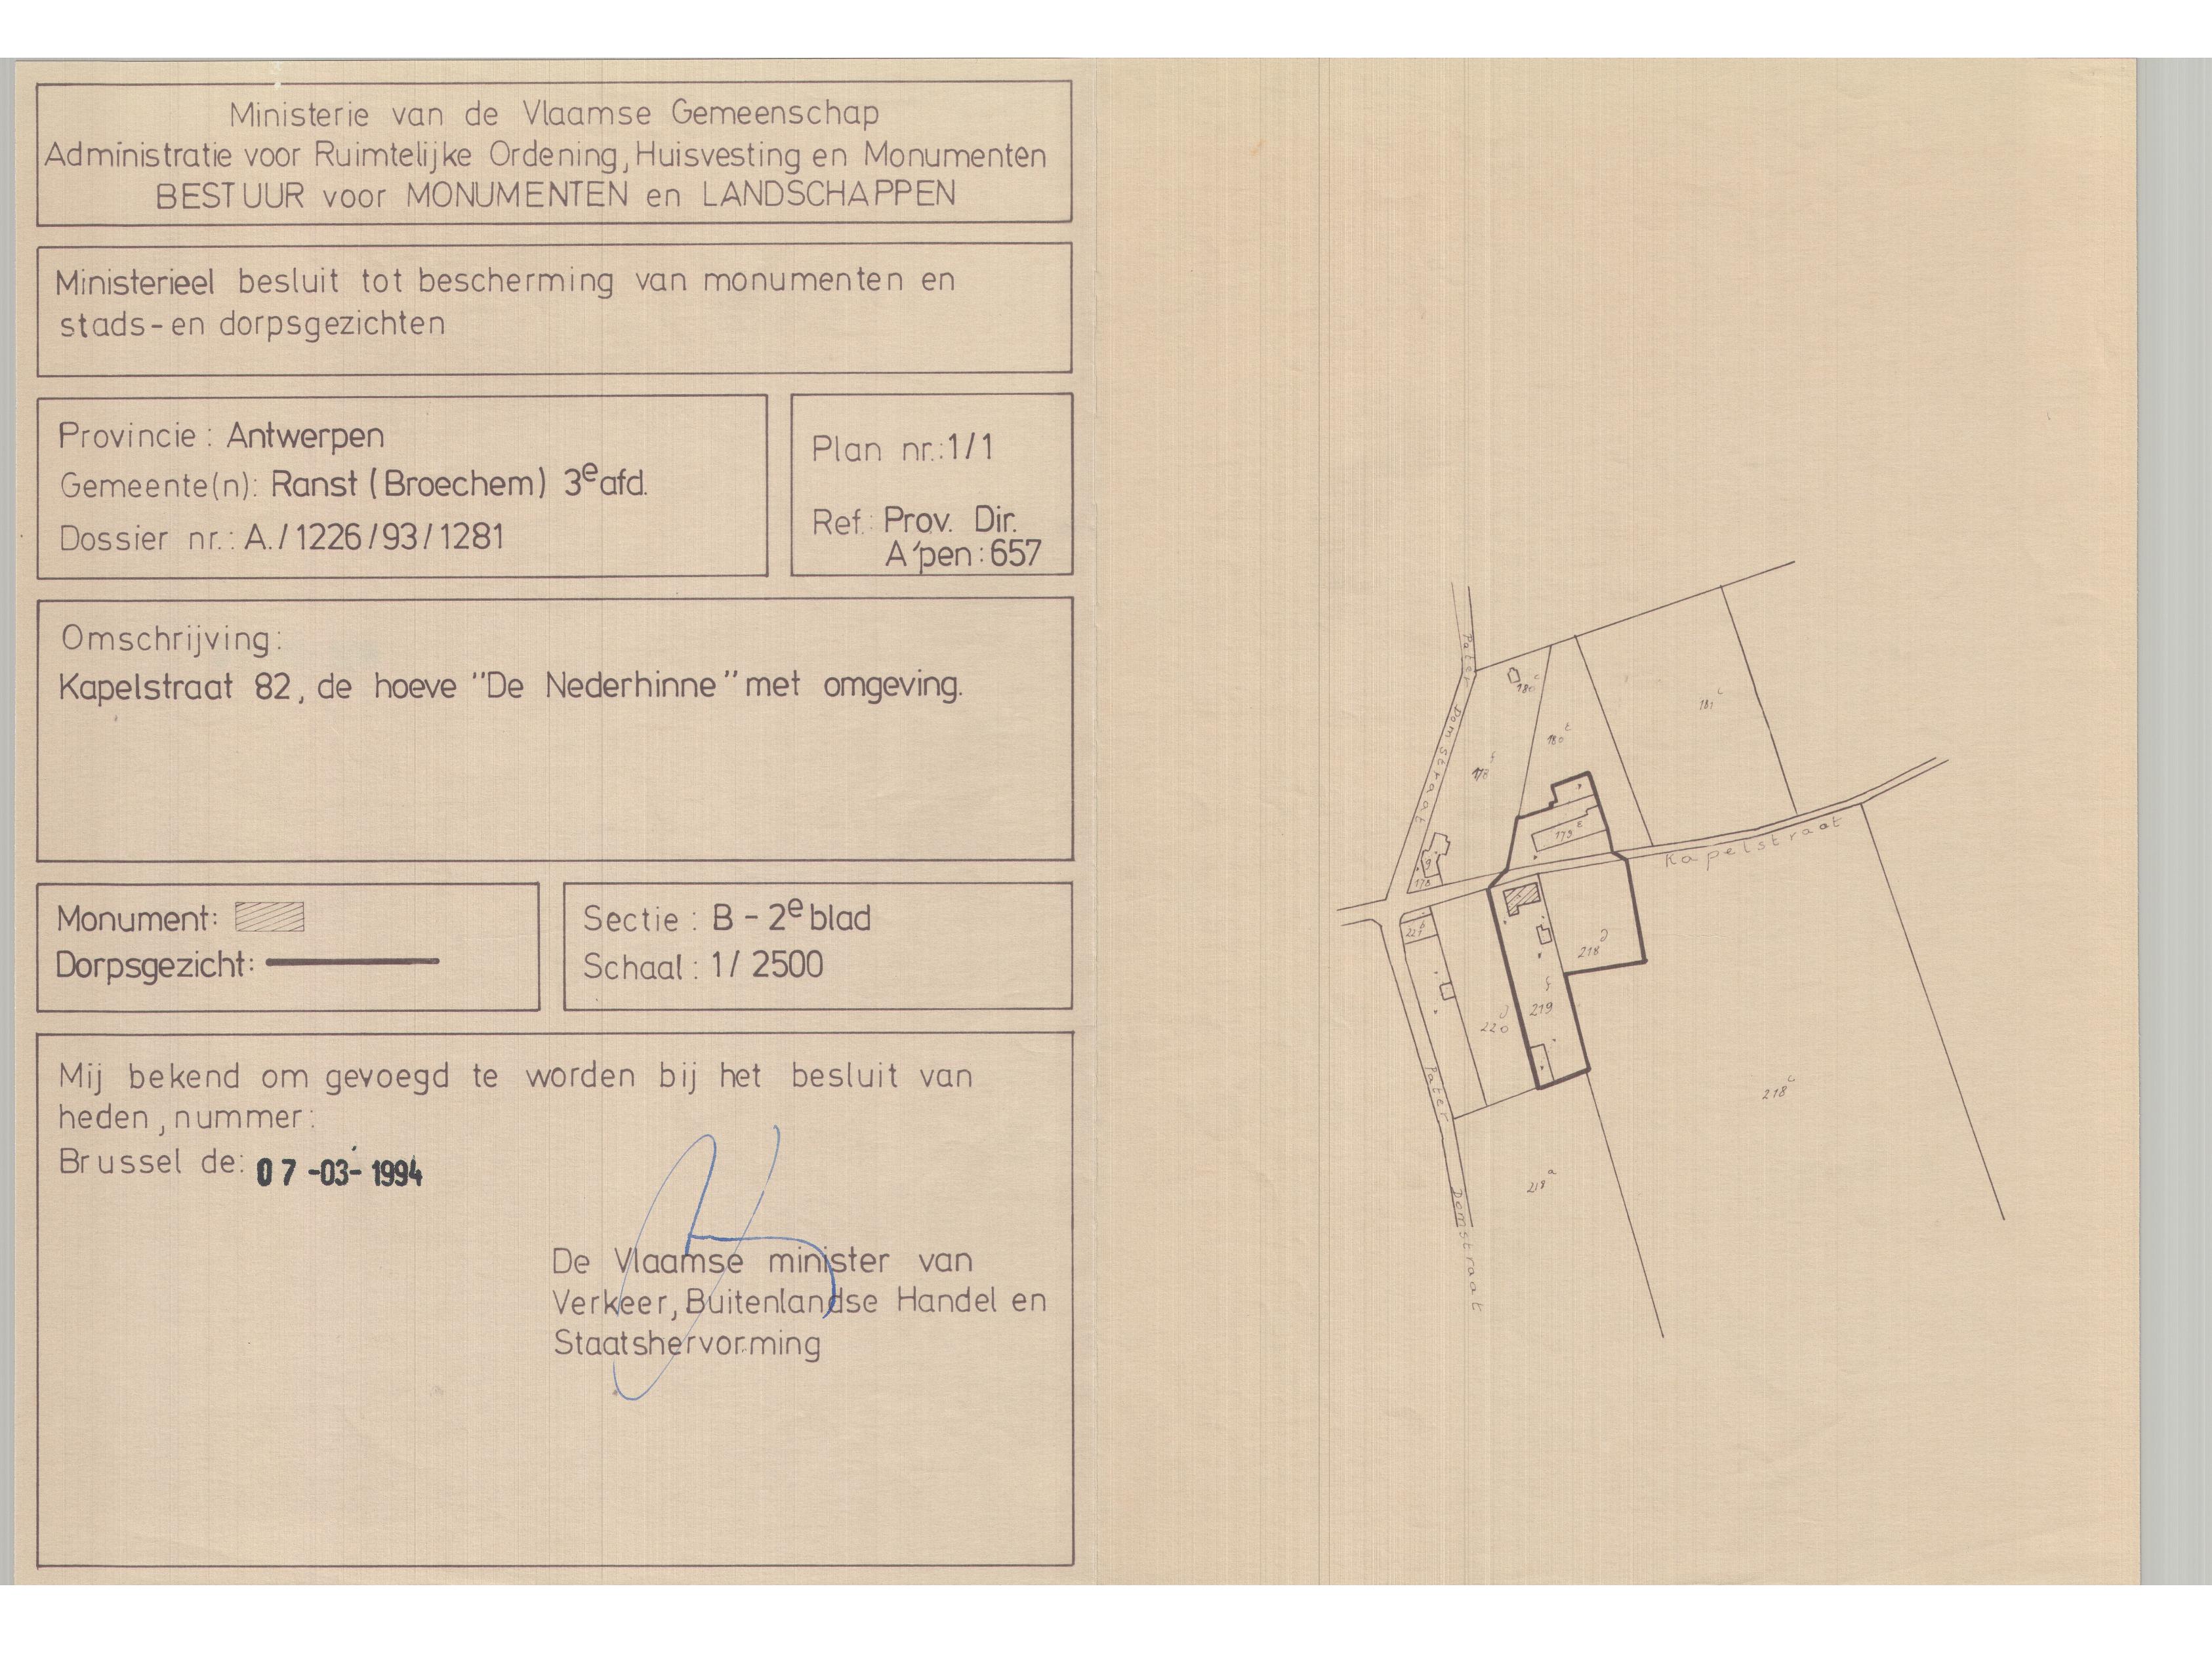 Ministerie van de Vlaamse Gemeenschap
Administratie voor Ruimtelijke Ordening, Huisvesting en Monumenten
BESTUUR voor MONUMENTEN en LANDSCHAPPEN
Ministerieel besluit tot bescherming van monumenten en
stads-en dorpsgezichten
Provincie : Antwerpen
Gemeente(n): Ranst (Broechem) 3e afd.
Dossier nr.: A./1226/93/1281
Plan nr.:1/1
Ref.: Prov. Dir.
A'pen:657
Omschrijving:
Kapelstraat 82, de hoeve "De Nederhinne" met omgeving.
Monument:
Dorpsgezicht:
Sectie : B - 2e blad
Schaal : 1/ 2500
Mij bekend om gevoegd te worden bij het besluit van
heden, nummer:
Brussel de: 07-03-1994
De Vlaamse minister van
Verkeer, Buitenlandse Handel en
Staatshervorming
Pater Domstraat
180 c
181 c
180
178
179
178
Kapelstraat
221
218
219
220
218 c
Pater Domstraat
219 a